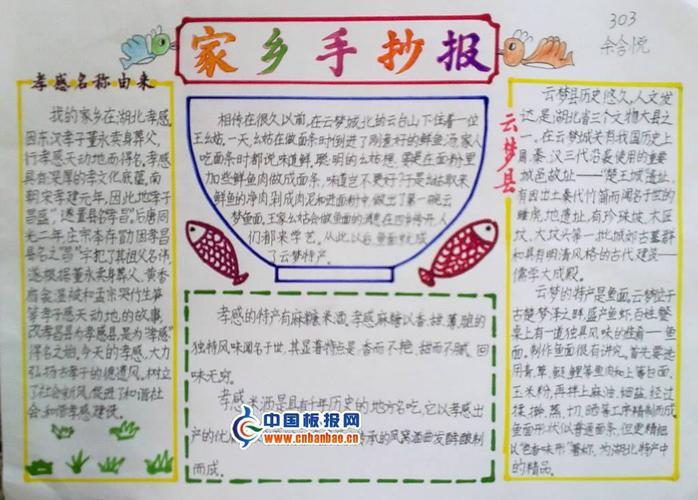 家乡手抄报
303
余含悦
孝感名称由来
我的家乡在湖北孝感,
因东汉孝子董永卖身葬父,
行孝感天动地而得名,孝感
具有深厚的孝文化底蕴,南
朝宋孝建元年,因此地"孝子
昌盛",遂置县名"孝昌";后唐同
光二年,庄宗李存勖因孝昌
县名之"昌"字犯了其祖父名讳,
遂根据董永卖身葬父、黄香
扇衾温被和孟宗哭竹生笋
等孝子感天动地的故事,
改孝昌县为孝感县,是为"孝感"
得名之始。今天的孝感,大力
弘扬古孝子的德道风,树立
了社会新风,促进了和谐社
会、和谐孝感建设。
相传在很久以前,在云梦城北的云台山下住着一位
王幺姑。一天,幺姑在做面条时倒进了刚煮好的鲜鱼汤,家人
吃面条时都说味道鲜。聪明的幺姑想:要是在面粉里
加些鲜鱼肉做成面条,味道岂不更好?于是幺姑取来
鲜鱼的净肉剁成肉泥和进面粉中,做出了第一碗云
梦鱼面,王家幺姑会做鱼面的消息在四乡传开,人
们都来学艺。从此以后,鱼面就成
了云梦特产。
孝感的特产有麻糖、米酒。孝感麻糖以香、甜、薄、脆的
独特风味闻名于世,其显著特点是:香而不艳、甜而不腻、回
味无穷。
孝感米酒是具有千年历史的地方名吃,它以孝感出
产的优
承的凤窝酒曲发酵酿制
而成。
云梦县
云梦县历史悠久,人文发
达,是湖北省三个文物大县之
一。在云梦城关有我国历史上
周、秦、汉三代沿袭使用的重要
城邑故址——"楚王城"遗址,
有因出土秦代竹简而闻名于世的
睡虎地遗址,有珍珠坡、木匠
坟、大坟头等一批城郊古墓群
和具有明清风格的古代建筑——
儒学大成殿。
云梦的特产是鱼面,云梦位于
古楚梦泽之畔,盛产鱼虾,百姓餐
桌上有一道独具风味的佳肴——鱼
面。制作鱼面很有讲究。首先要选
用青、草、鲢、鲤等鱼肉和上等白面、
玉米粉,再拌上麻油、细盐,经过
揉、擀、蒸、切、晒等工序精制而成,
鱼面形状似普通面条,但更精细,
以"色香味形"著称,为湖北特产中
的精品。
中国板报网
www.cnbanbao.cn